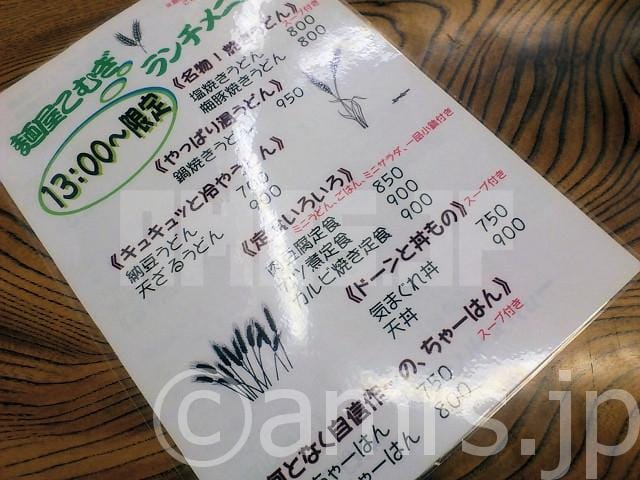 麺屋こむぎ
ランチメニ
13:00～限定
《名物！焼きうどん》スープ付き
塩焼きうどん 800
豚焼きうどん 800
《やっぱり温うどん》
鍋焼きうどん 950
《キュキュッと冷やうどん》
納豆うどん
天ざるうどん 900
《定食いろいろ》
ミニうどん、ごはん、ミニサラダ、一品小鉢付き
豆腐定食 850
煮定食 900
カルビ焼き定食 900
《ドーンと丼もの》スープ付き
気まぐれ丼 750
天丼 900
何となく自信作 の、ちゃーはん》スープ付き
ちゃーはん 750
ちゃーはん 800
©amrs.jp